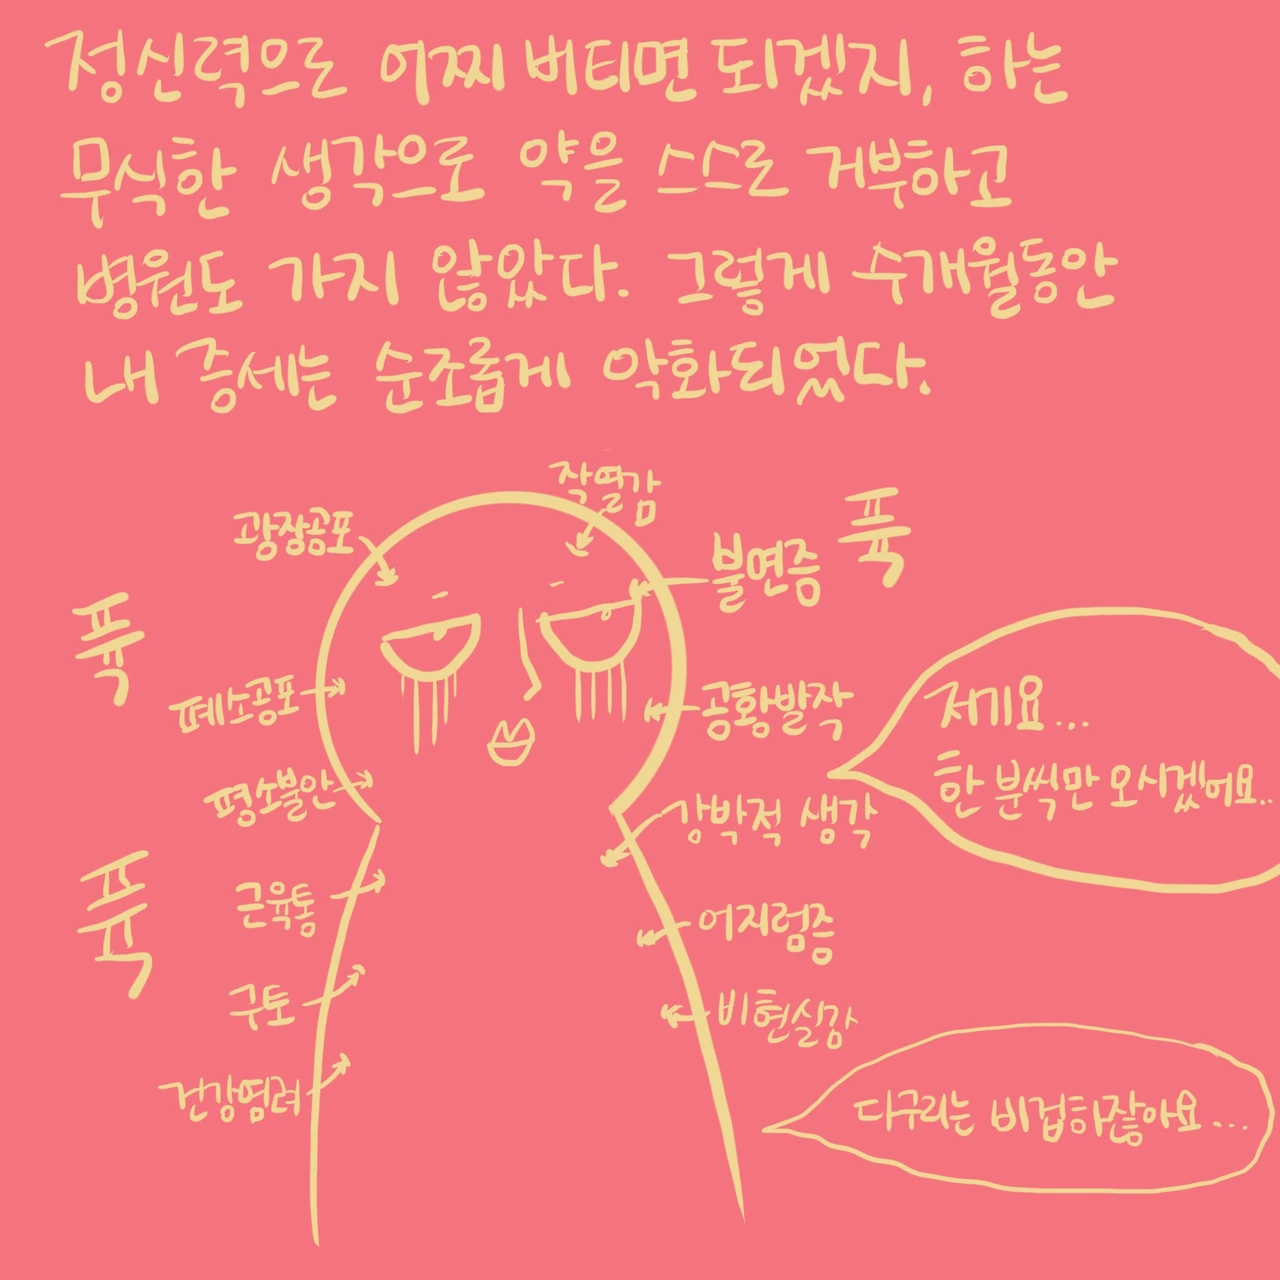 정신력으로 어찌 버티면 되겠지, 하는
무식한 생각으로 약을 스스로 거부하고
병원도 가지 않았다. 그렇게 수개월동안
내 증세는 순조롭게 악화되었다.
작열감
광장공포
불면증
퓩
퓩
폐소공포
공황발작
저기요...
한 분씩만 오시겠어요..
평소불안
강박적 생각
퓩
근육통
어지럼증
구토
비현실감
건강염려
다구리는 비겁하잖아요...